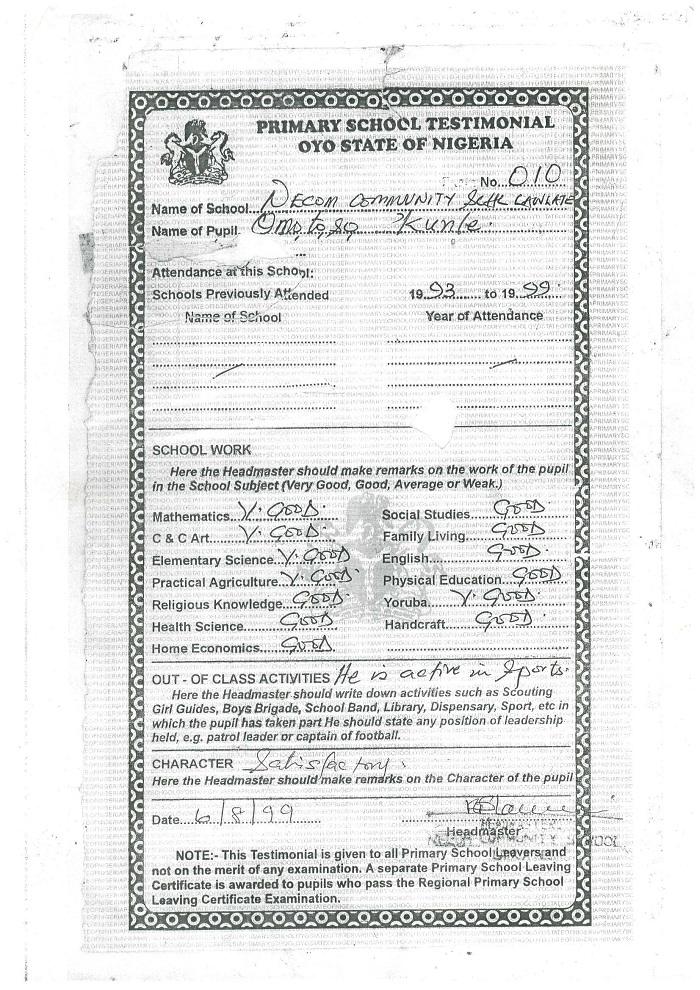 PRIMARY SCHOOL TESTIMONIAL
OYO STATE OF NIGERIA
No. 010
Name of School NECOM COMMUNITY SCHL
Name of Pupil Omotoso 'Kunle.
Attendance at this School:
Schools Previously Attended 1993 to 1999.
Name of School Year of Attendance
SCHOOL WORK
Here the Headmaster should make remarks on the work of the pupil
in the School Subject (Very Good, Good, Average or Weak.)
Mathematics V. GOOD. Social Studies GOOD.
C & C Art V. GOOD. Family Living GOOD
Elementary Science V. GOOD English GOOD.
Practical Agriculture V. GOOD Physical Education GOOD
Religious Knowledge GOOD. Yoruba V. GOOD.
Health Science GOOD Handcraft GOOD.
Home Economics GOOD.
OUT - OF CLASS ACTIVITIES He is active in Sports.
Here the Headmaster should write down activities such as Scouting
Girl Guides, Boys Brigade, School Band, Library, Dispensary, Sport, etc in
which the pupil has taken part He should state any position of leadership
held, e.g. patrol leader or captain of football.
CHARACTER Satisfactory.
Here the Headmaster should make remarks on the Character of the pupil
Date 6/8/99
Headmaster
COMMUNITY SCHOOL
NOTE:- This Testimonial is given to all Primary School Leavers and
not on the merit of any examination. A separate Primary School Leaving
Certificate is awarded to pupils who pass the Regional Primary School
Leaving Certificate Examination.